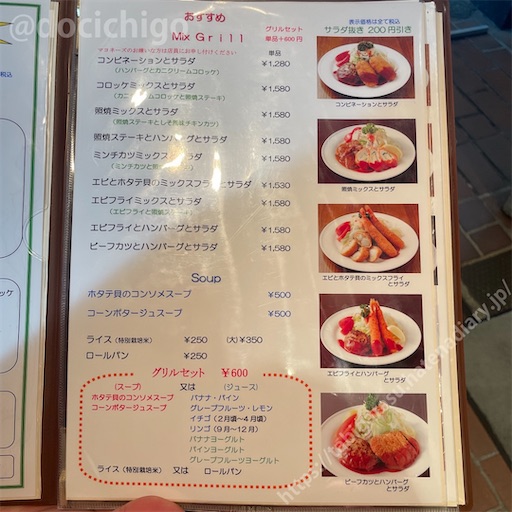 @docichigo
おすすめ
Mix Grill
グリルセット
単品+600円
表示価格は全て税込
サラダ抜き 200円引き
マヨネーズのお嫌いな方は店員にお申し付けください
単品
コンビネーションとサラダ ¥1,280
(ハンバーグとカニクリームコロッケ)
コロッケミックスとサラダ ¥1,580
(カニクリームコロッケと照焼ステーキ)
照焼ミックスとサラダ ¥1,580
(照焼ステーキとしそ巻はチキンカツ)
照焼ステーキとハンバーグとサラダ ¥1,580
ミンチカツミックスとサラダ ¥1,580
エビとホタテ貝のミックスフライとサラダ ¥1,530
エビフライミックスとサラダ ¥1,580
エビフライとハンバーグとサラダ ¥1,580
ビーフカツとハンバーグとサラダ ¥1,580
Soup
ホタテ貝のコンソメスープ ¥500
コーンポタージュスープ ¥500
ライス(特別栽培米) ¥250 (大)¥350
ロールパン ¥250
グリルセット ¥600
(スープ) 又は (ジュース)
ホタテ貝のコンソメスープ バナナ・パイン
コーンポタージュスープ グレープフルーツ・レモン
イチゴ(2月頃~4月頃)
リンゴ(9月~12月)
バナナヨーグルト
パインヨーグルト
グレープフルーツヨーグルト
ライス(特別栽培米) 又は ロールパン
コンビネーションとサラダ
照焼ミックスとサラダ
エビとホタテ貝のミックスフライ
とサラダ
エビフライとハンバーグ
とサラダ
ビーフカツとハンバーグ
とサラダ
税込